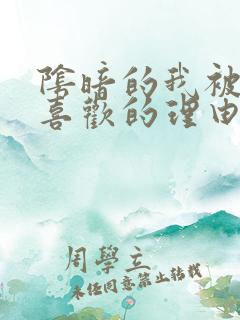 陰暗的我被
喜歡的理由
周學立
未经同意禁止转载